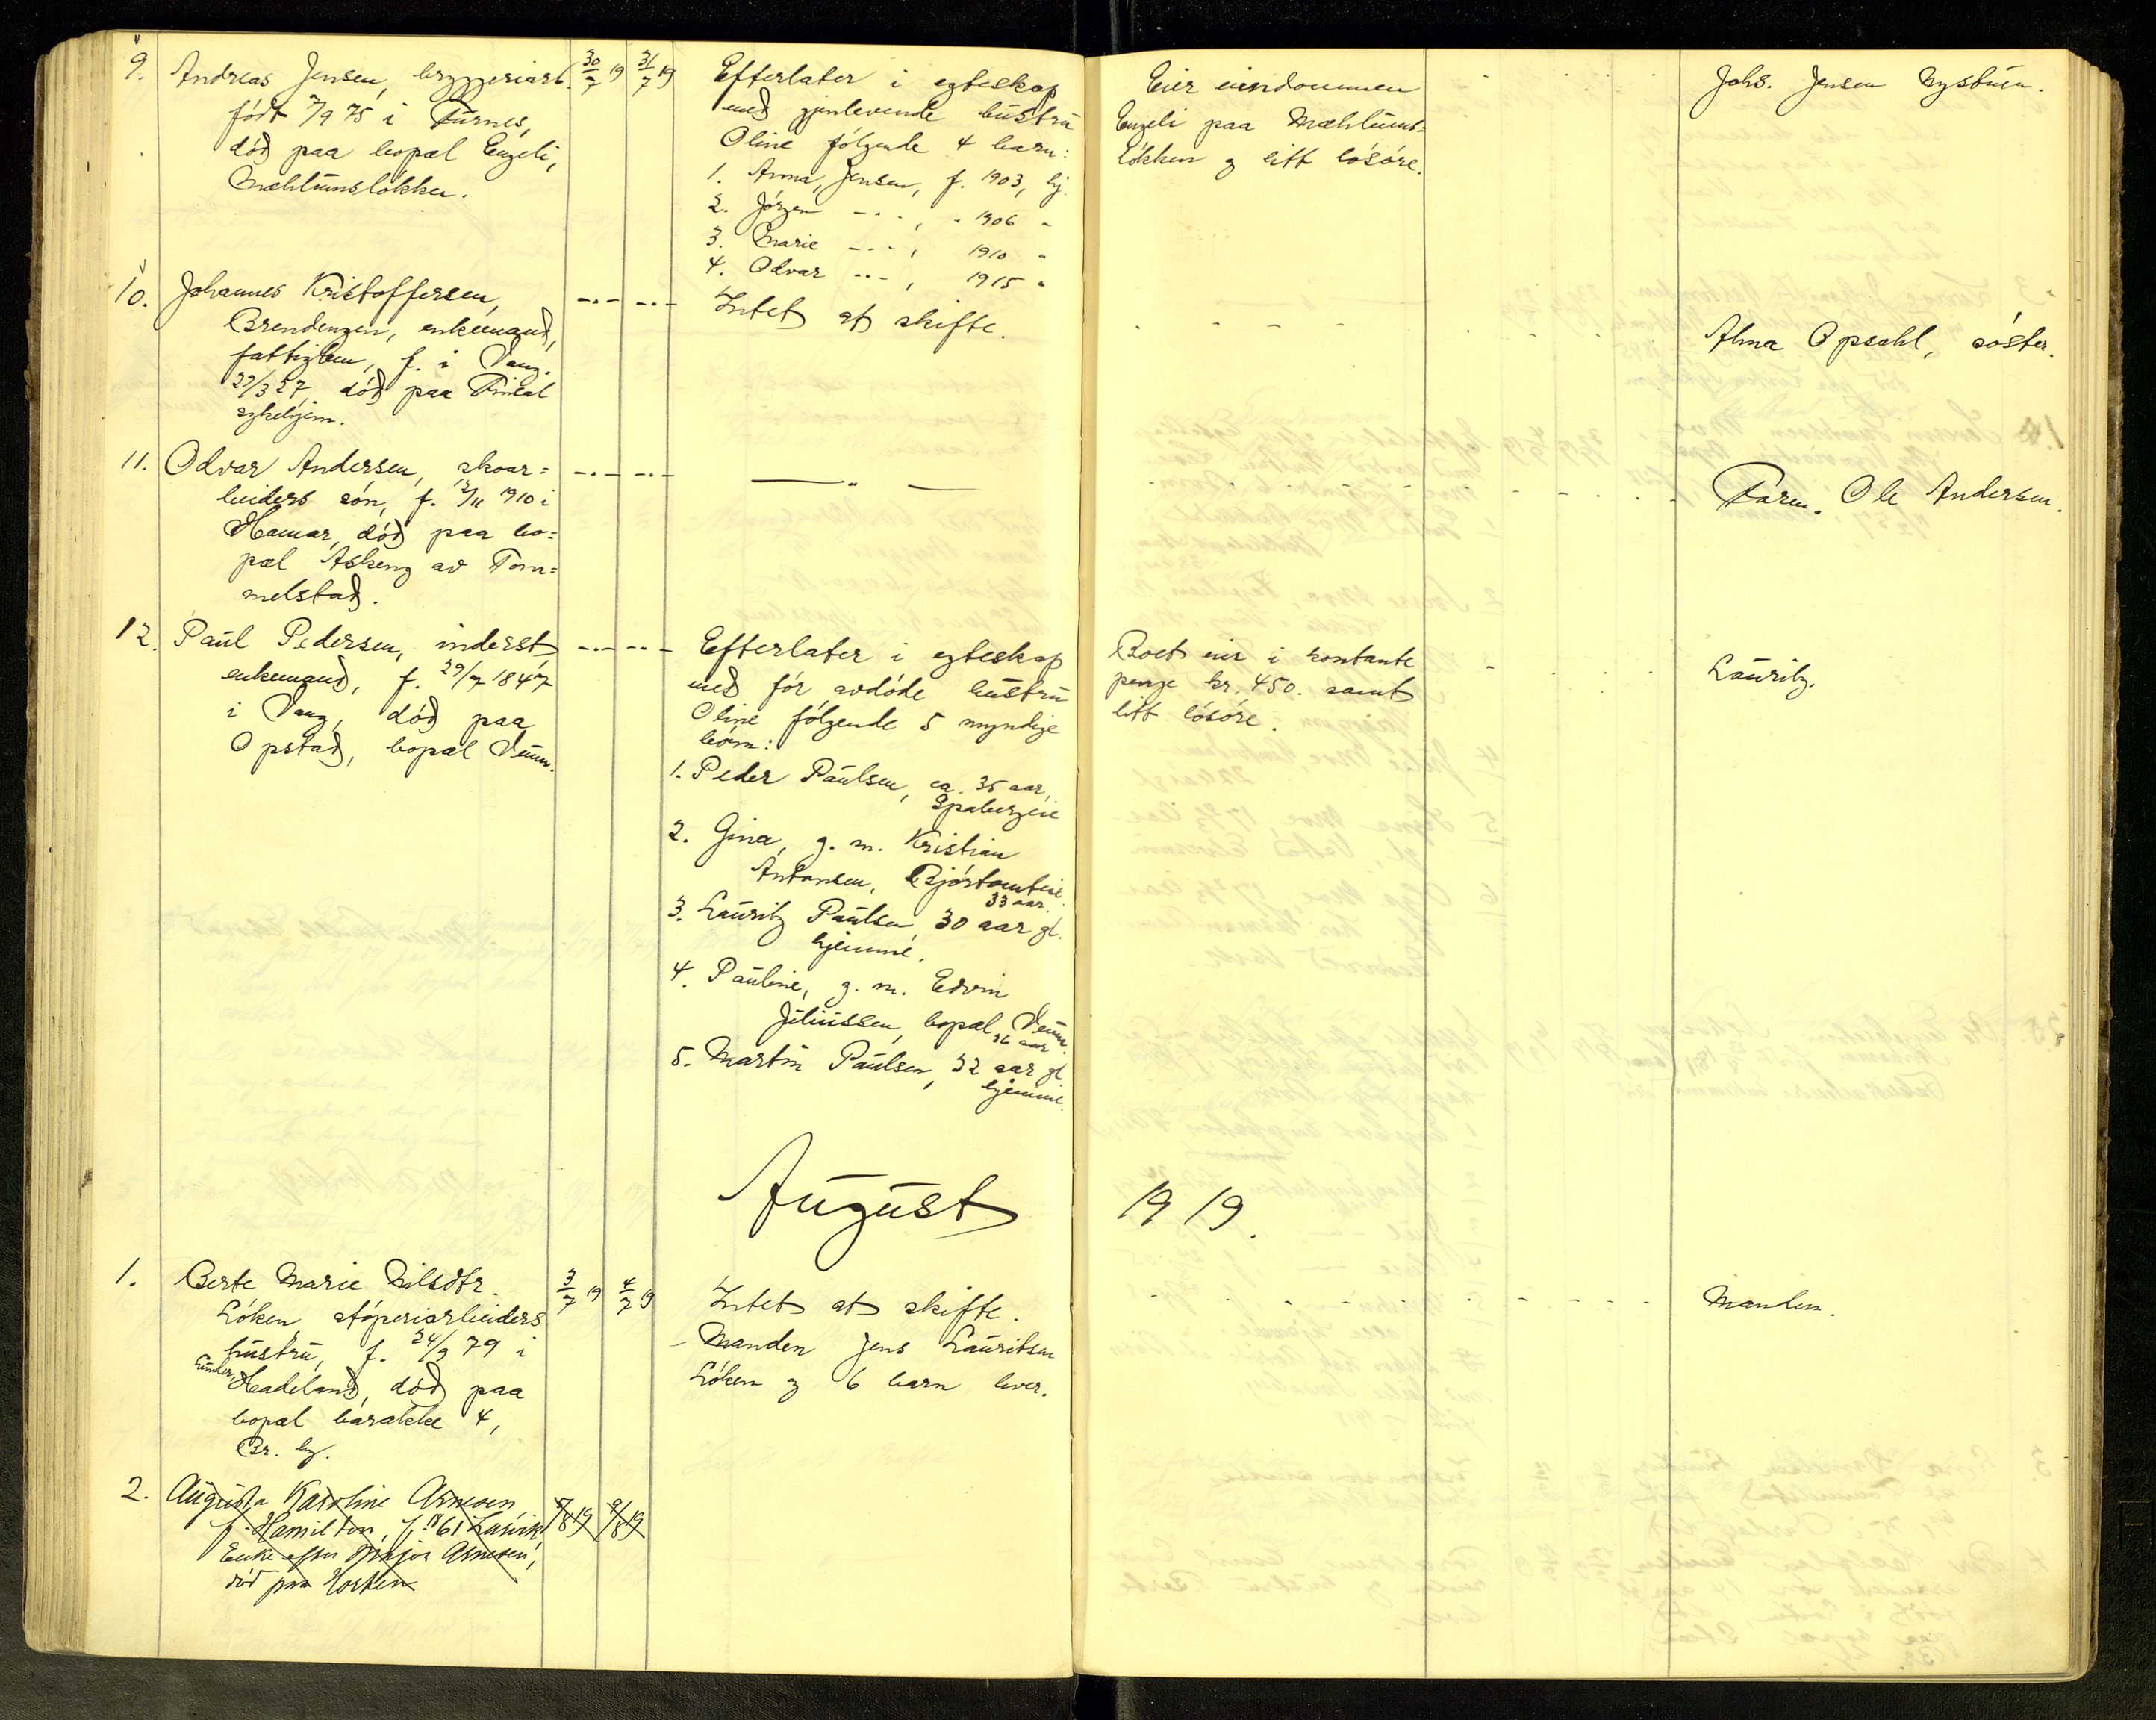 9. Andreas Jensen, bryggeriarb. 30/7 19 31/7 19
født 7/9 75 i Furnes,
død paa bopæl Engeli,
Mæhlumsløkken.
Efterlater i egteskap
med gjenlevende hustru
Oline følgende 4 barn:
1. Anna Jensen, f. 1903, hj.
2. Jørgen -..-, " 1906 "
3. Marie -..-, 1910 "
4. Odvar -..-, 1915 "
Eier eiendommen
Engeli paa Mæhlums=
løkken og litt løsøre.
Johs. Jensen Nysbuen.
10. Johannes Kristoffersen, -..- -..-
Brendengen, enkemand,
fattiglem, f. i Vang
27/3 27, død paa Finsal
sykehjem.
Intet at skifte.
Alma Opsahl, søster.
11. Odvar Andersen, skoar= -..- -..-
beiders søn, f. 2/11 1910 i
Hamar, død paa bo=
pæl Askeng av Tom=
melstad.
— " —
Farm. Ole Andersen.
12. Paul Pedersen, inderst -..- -..-
enkemand, f. 29/7 1847
i Vang, død paa
Opstad, bopæl
Efterlater i egteskap
med før avdøde hustru
Oline følgende 5 myndige
børn:
1. Peder Paulsen, ca. 35 aar,
Spabergeie
2. Gina, g. m. Kristian
Antonsen, Bjørtomteie
33 aar.
3. Lauritz Paulsen, 30 aar gl.
hjemme.
4. Pauline, g. m. Edvin
Juliussen, bopæl
26 aar
5. Martin Paulsen, 32 aar gl.
hjemme.
Boet eier i kontante
penge kr. 450. samt
litt løsøre.
Lauritz.
August 1919.
1. Berte Marie Nilsdtr. 3/7 19 4/7 19
Løken, støperiarbeiders
hustru, f. 24/9 79 i
Hadeland, død paa
bopæl barakke 4,
Br. by.
Intet at skifte.
- Manden Jens Lauritsen
Løken og 6 barn lever.
Manden.
2. Augusta Karoline Arnesen 5/8 19 9/8 19
f. Hamilton, f. 18 61 Larvik
Enke efter Major Arnesen,
død paa Horten